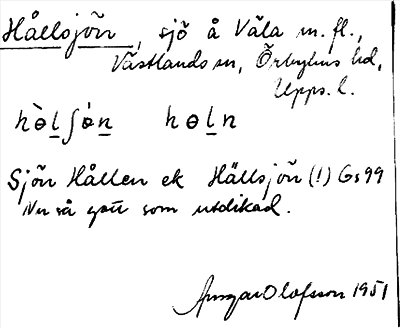 Hållsjön, sjö å Väla m. fl.,
Västlands sn, Örbyhus hd,
Upps. l.
hɵ̀lʃɵ́n hɵln
Sjön Hållen ek Hällsjön (!) Gs 99
Nu så gott som utdikad.
Ansgar Olofsson 1951